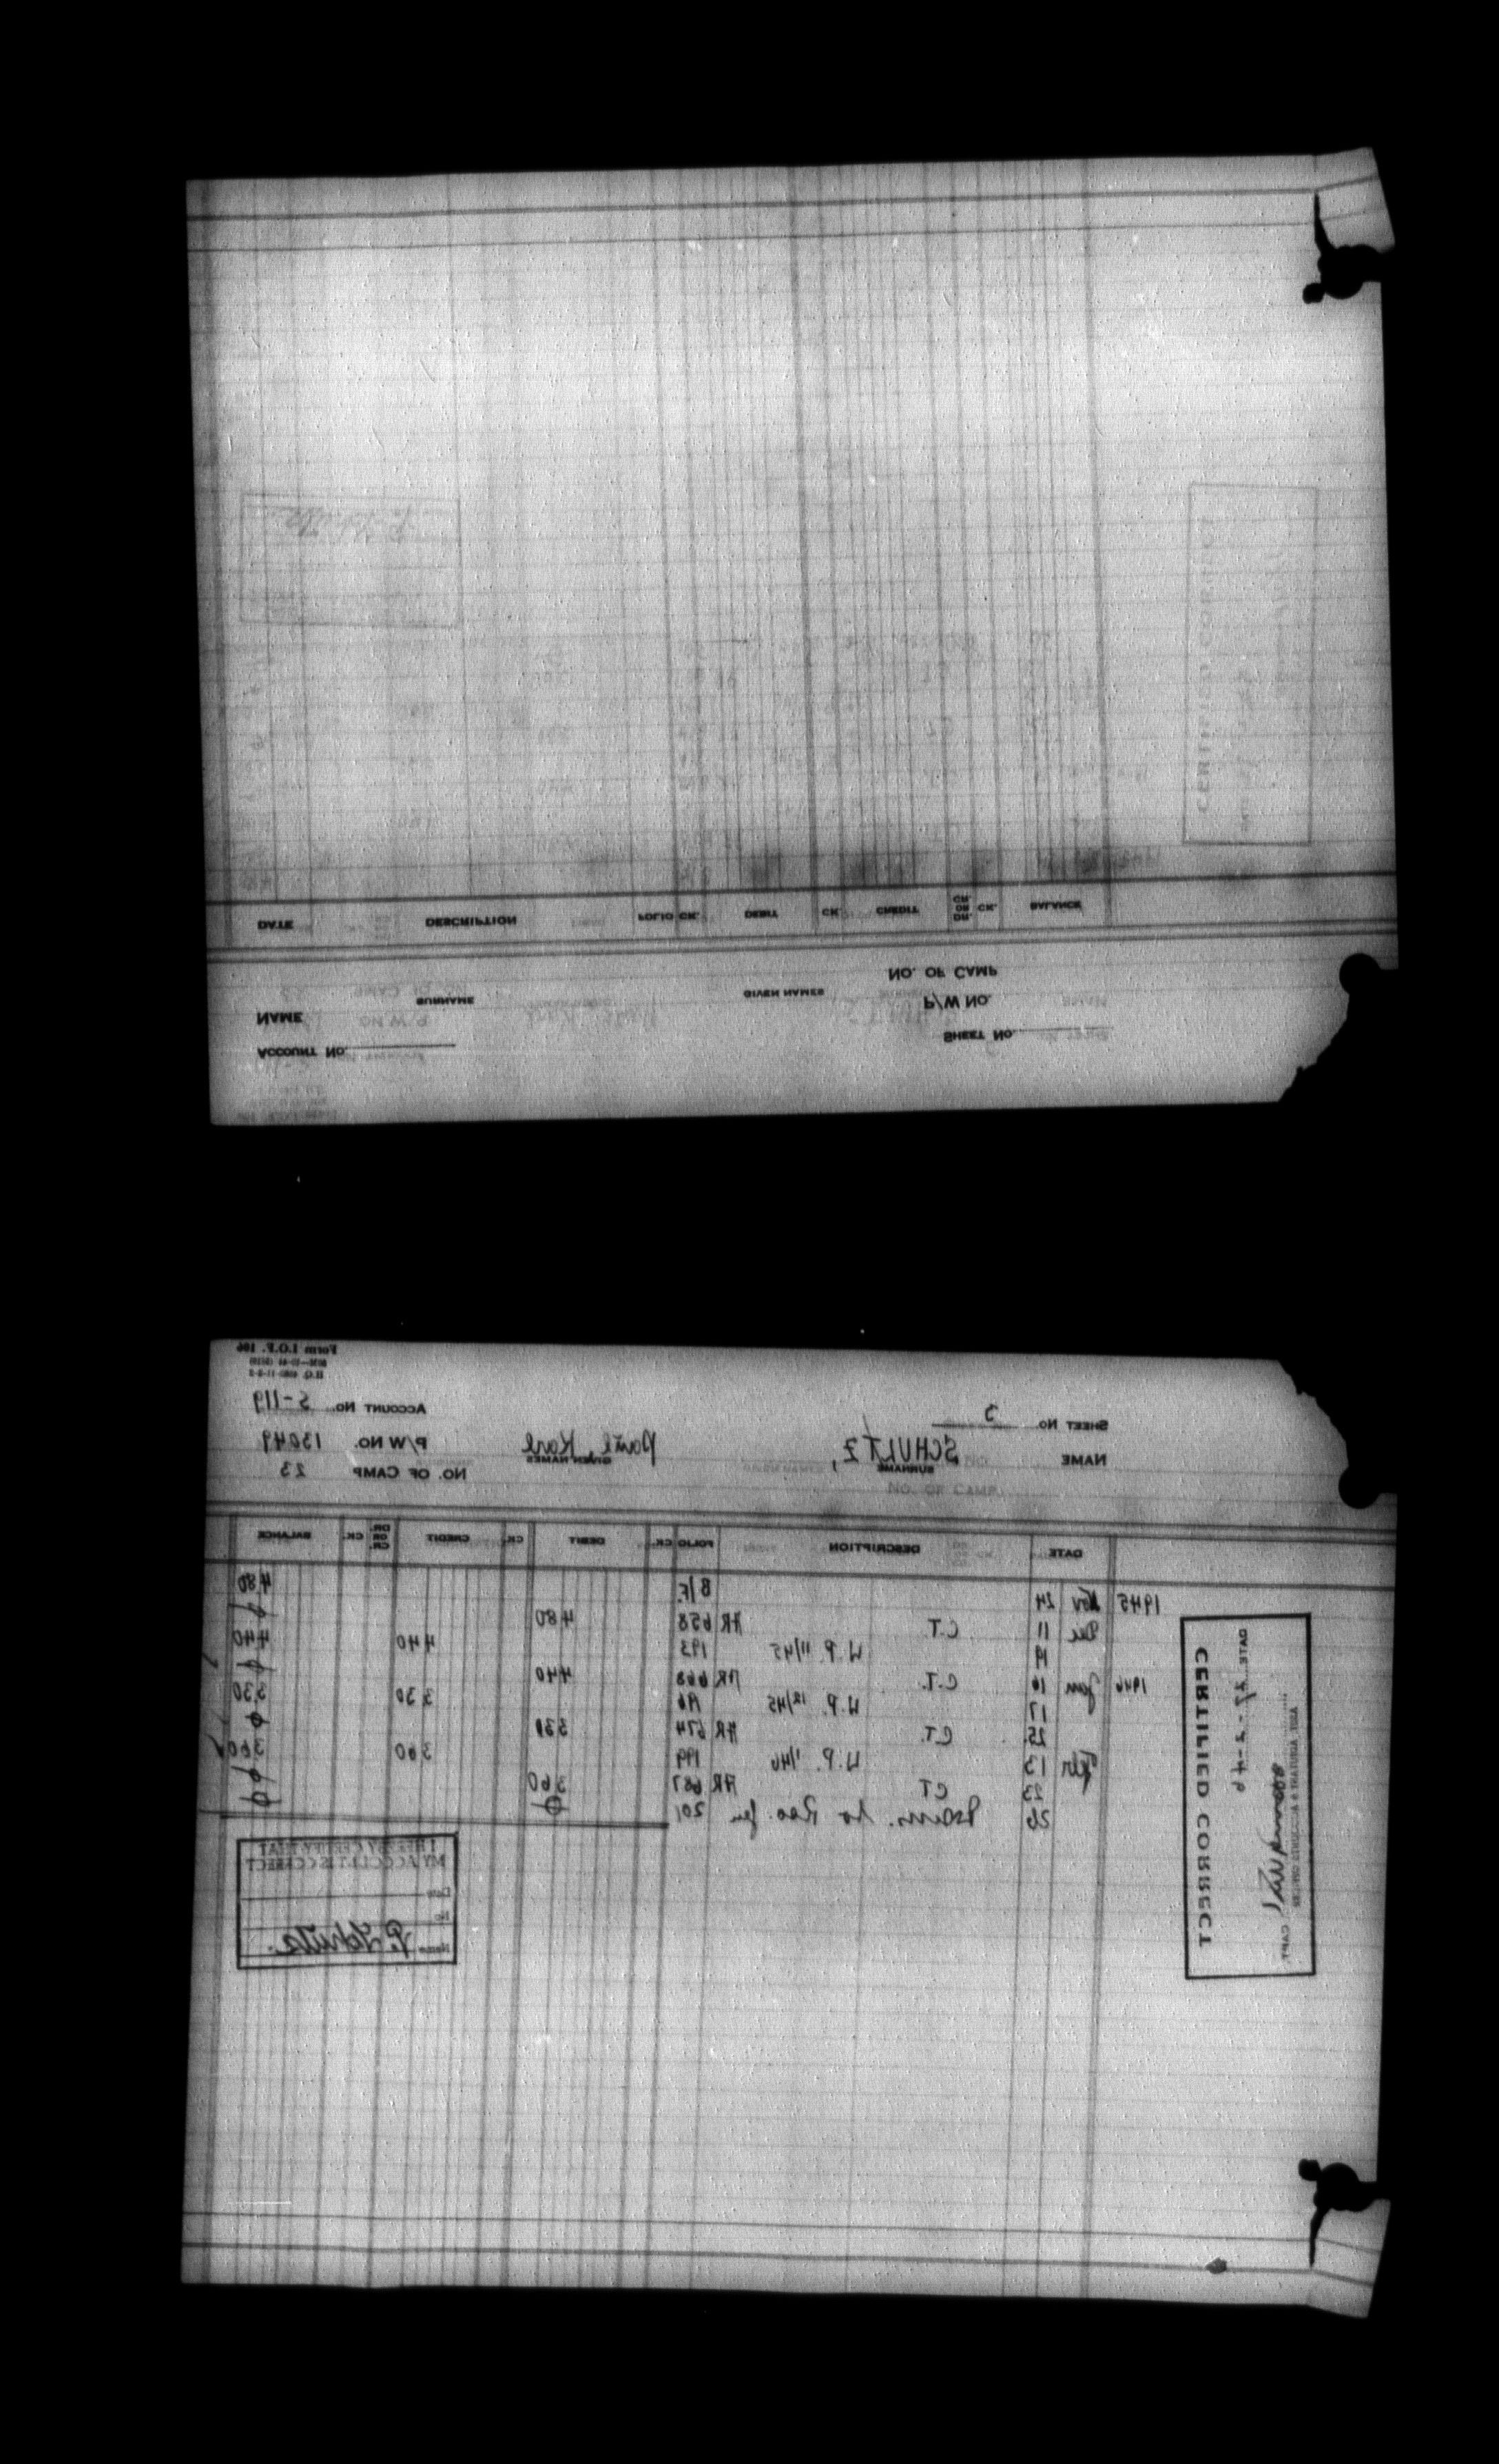 DATE DESCRIPTION FOLIO CK. DEBIT CK. CREDIT CR. OR DR. CK. BALANCE
NO. OF CAMP
SURNAME GIVEN NAMES
NAME P/W NO.
ACCOUNT NO. SHEET NO.
Form I.O.F. 106
SHEET No. 3 ACCOUNT No. S-119
NAME SCHULTZ, Paul, Karl P/W NO. 13049
SURNAME GIVEN NAMES
NO. OF CAMP 23
DATE DESCRIPTION FOLIO CK. DEBIT CK. CREDIT CR. OR DR. CK. BALANCE
1945 Nov 24 B/F. 480
Dec 11 C.T. AR 658 480 φ
19 W.P. 11/45 193 440 440
1946 Jan 10 C.T. AR 668 440 φ
17 W.P. 12/45 196 330 330
25 C.T. AR 674 330 φ
Feb 13 W.P. 1/46 199 360 360
23 CT AR 687 360 φ
26 Trans. to Rec. Gen 201 φ φ
CERTIFIED CORRECT
DATE
CAPT.
I HEREBY CERTIFY THAT
MY ACCOUNT IS CORRECT
Date
No.
Name P. Schultz.